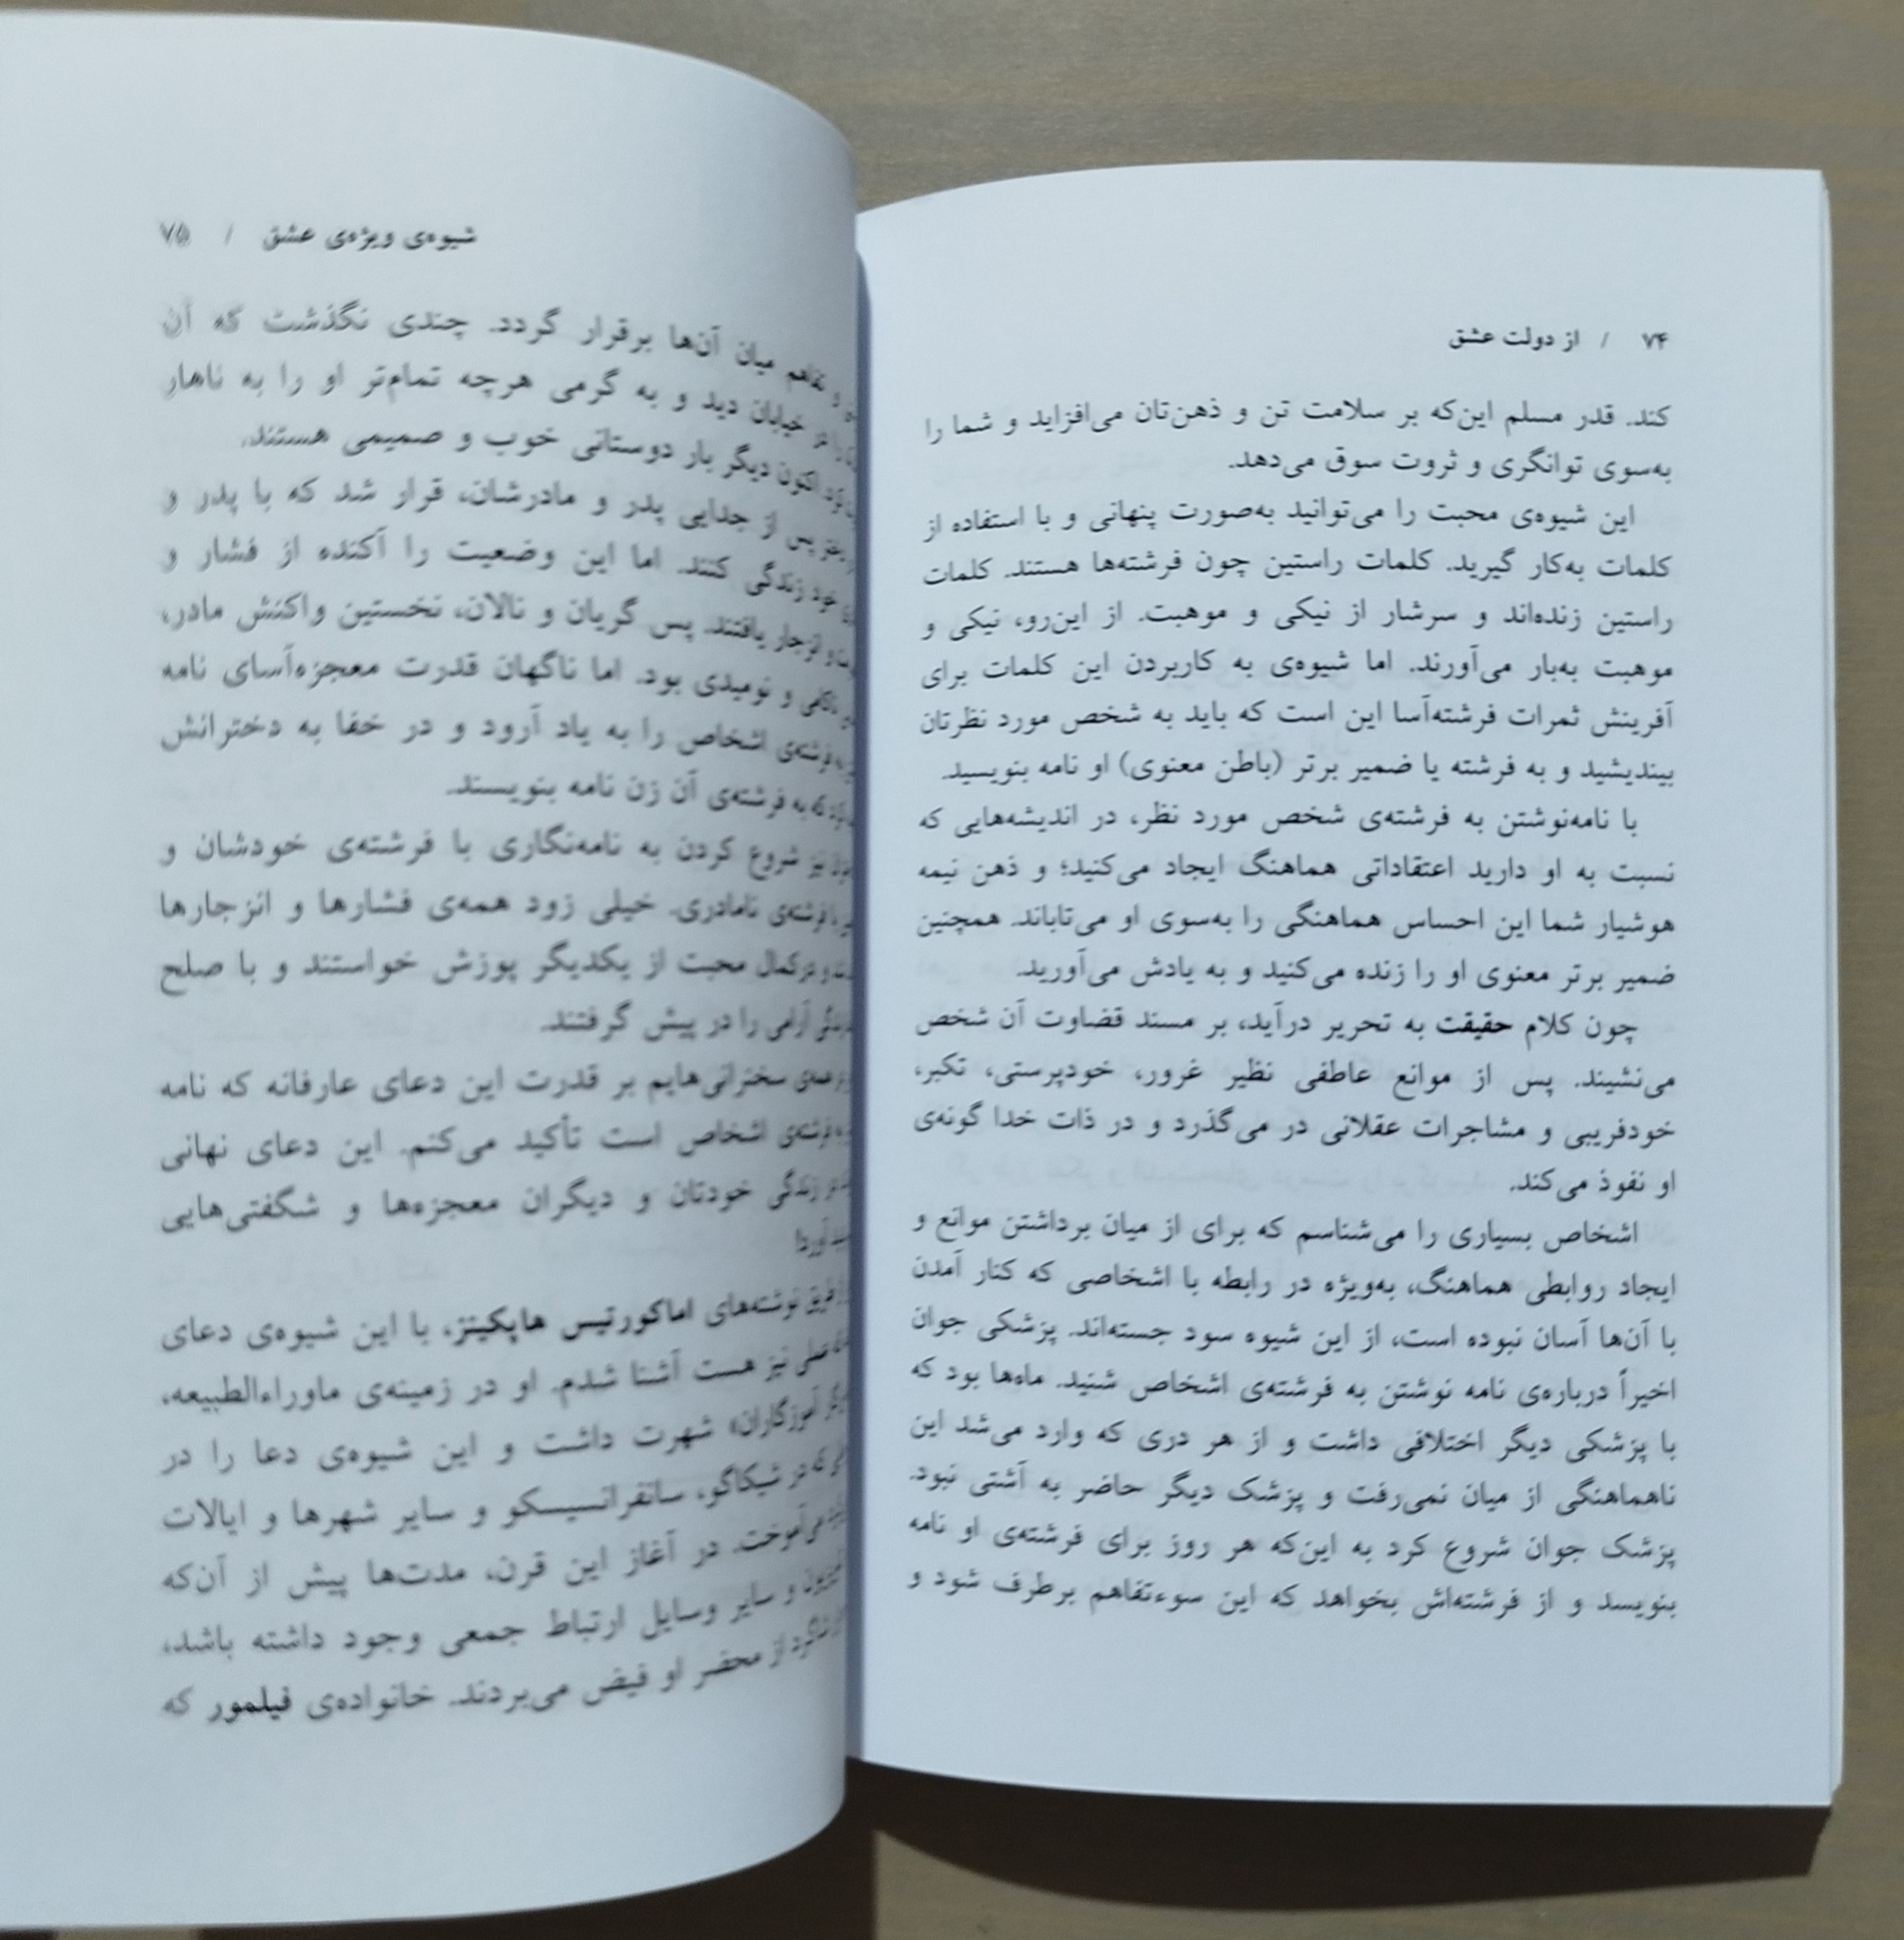 ۷۴ / از دولت عشق
کند. قدر مسلم این‌که بر سلامت تن و ذهن‌تان می‌افزاید و شما را
به‌سوی توانگری و ثروت سوق می‌دهد.
این شیوه‌ی محبت را می‌توانید به‌صورت پنهانی و با استفاده از
کلمات به‌کار گیرید. کلمات راستین چون فرشته‌ها هستند. کلمات
راستین زنده‌اند و سرشار از نیکی و موهبت. از این‌رو، نیکی و
موهبت به‌بار می‌آورند. اما شیوه‌ی به کاربردن این کلمات برای
آفرینش ثمرات فرشته‌آسا این است که باید به شخص مورد نظرتان
بیندیشید و به فرشته یا ضمیر برتر (باطن معنوی) او نامه بنویسید.
با نامه‌نوشتن به فرشته‌ی شخص مورد نظر، در اندیشه‌هایی که
نسبت به او دارید اعتقاداتی هماهنگ ایجاد می‌کنید؛ و ذهن نیمه
هوشیار شما این احساس هماهنگی را به‌سوی او می‌تاباند. همچنین
ضمیر برتر معنوی او را زنده می‌کنید و به یادش می‌آورید.
چون کلام حقیقت به تحریر درآید، بر مسند قضاوت آن شخص
می‌نشیند. پس از موانع عاطفی نظیر غرور، خودپرستی، تکبر،
خودفریبی و مشاجرات عقلانی در می‌گذرد و در ذات خدا گونه‌ی
او نفوذ می‌کند.
اشخاص بسیاری را می‌شناسم که برای از میان برداشتن موانع و
ایجاد روابطی هماهنگ، به‌ویژه در رابطه با اشخاصی که کنار آمدن
با آن‌ها آسان نبوده است، از این شیوه سود جسته‌اند. پزشکی جوان
اخیراً درباره‌ی نامه نوشتن به فرشته‌ی اشخاص شنید. ماه‌ها بود که
با پزشکی دیگر اختلافی داشت و از هر دری که وارد می‌شد این
ناهماهنگی از میان نمی‌رفت و پزشک دیگر حاضر به آشتی نبود.
پزشک جوان شروع کرد به این‌که هر روز برای فرشته‌ی او نامه
بنویسد و از فرشته‌اش بخواهد که این سوءتفاهم برطرف شود و
شیوه‌ی ویژه‌ی عشق / ۷۵
و تفاهم میان آن‌ها برقرار گردد. چندی نگذشت که آن
را در خیابان دید و به گرمی هرچه تمام‌تر او را به ناهار
کرد. اکنون دیگر بار دوستانی خوب و صمیمی هستند.
پس از جدایی پدر و مادرشان، قرار شد که با پدر و
خود زندگی کنند. اما این وضعیت را آکنده از فشار و
و انزجار یافتند. پس گریان و نالان، نخستین واکنش مادر،
ناکامی و نومیدی بود. اما ناگهان قدرت معجزه‌آسای نامه
به فرشته‌ی اشخاص را به یاد آرود و در خفا به دخترانش
که به فرشته‌ی آن زن نامه بنویسند.
نیز شروع کردن به نامه‌نگاری با فرشته‌ی خودشان و
با فرشته‌ی نامادری. خیلی زود همه‌ی فشارها و انزجارها
و در کمال محبت از یکدیگر پوزش خواستند و با صلح
آرامی را در پیش گرفتند.
سخنرانی‌هایم بر قدرت این دعای عارفانه که نامه
به فرشته‌ی اشخاص است تأکید می‌کنم. این دعای نهانی
در زندگی خودتان و دیگران معجزه‌ها و شگفتی‌هایی
آورد!
از طریق نوشته‌های اماکورتیس هاپکینز، با این شیوه‌ی دعای
عملی نیز هست آشنا شدم. او در زمینه‌ی ماوراءالطبیعه،
آموزگاران» شهرت داشت و این شیوه‌ی دعا را در
که در شیکاگو، سانفرانسیسکو و سایر شهرها و ایالات
می‌آموخت. در آغاز این قرن، مدت‌ها پیش از آن‌که
و سایر وسایل ارتباط جمعی وجود داشته باشد،
شاگرد از محضر او فیض می‌بردند. خانواده‌ی فیلمور که